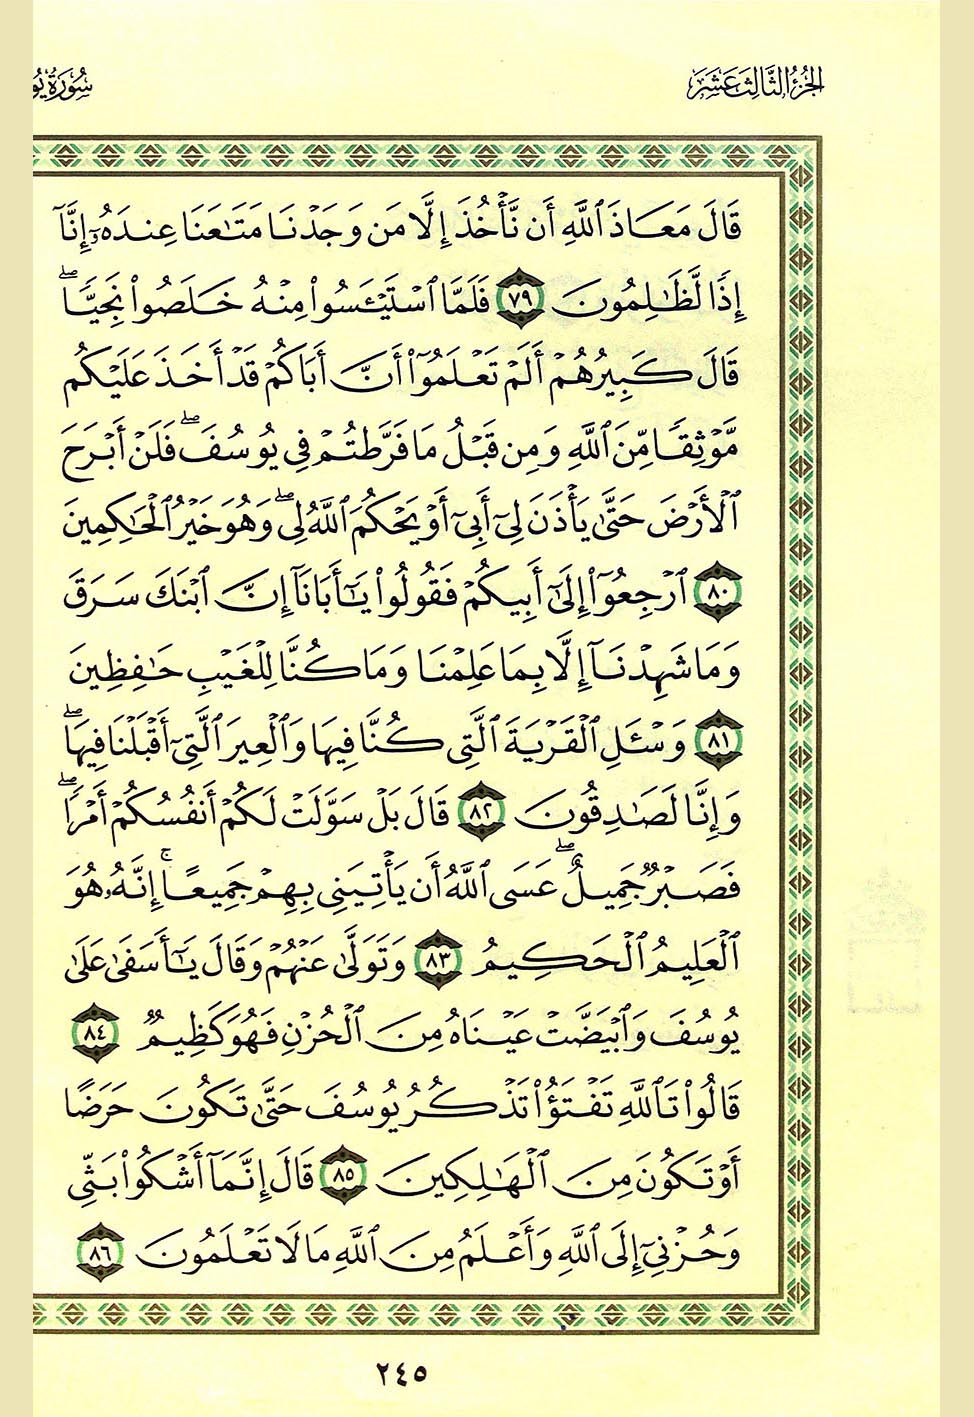 الجزء الثالث عشر
سورة يو
قَالَ مَعَاذَ ٱللَّهِ أَن نَّأْخُذَ إِلَّا مَن وَجَدْنَا مَتَٰعَنَا عِندَهُۥٓ إِنَّآ
إِذًا لَّظَٰلِمُونَ ٧٩ فَلَمَّا ٱسْتَيْـَٔسُوا۟ مِنْهُ خَلَصُوا۟ نَجِيًّا ۖ
قَالَ كَبِيرُهُمْ أَلَمْ تَعْلَمُوٓا۟ أَنَّ أَبَاكُمْ قَدْ أَخَذَ عَلَيْكُم
مَّوْثِقًا مِّنَ ٱللَّهِ وَمِن قَبْلُ مَا فَرَّطتُمْ فِى يُوسُفَ ۖ فَلَنْ أَبْرَحَ
ٱلْأَرْضَ حَتَّىٰ يَأْذَنَ لِىٓ أَبِىٓ أَوْ يَحْكُمَ ٱللَّهُ لِى ۖ وَهُوَ خَيْرُ ٱلْحَٰكِمِينَ
٨٠ ٱرْجِعُوٓا۟ إِلَىٰٓ أَبِيكُمْ فَقُولُوا۟ يَٰٓأَبَانَآ إِنَّ ٱبْنَكَ سَرَقَ
وَمَا شَهِدْنَآ إِلَّا بِمَا عَلِمْنَا وَمَا كُنَّا لِلْغَيْبِ حَٰفِظِينَ
٨١ وَسْـَٔلِ ٱلْقَرْيَةَ ٱلَّتِى كُنَّا فِيهَا وَٱلْعِيرَ ٱلَّتِىٓ أَقْبَلْنَا فِيهَا ۖ
وَإِنَّا لَصَٰدِقُونَ ٨٢ قَالَ بَلْ سَوَّلَتْ لَكُمْ أَنفُسُكُمْ أَمْرًا ۖ
فَصَبْرٌ جَمِيلٌ ۖ عَسَى ٱللَّهُ أَن يَأْتِيَنِى بِهِمْ جَمِيعًا ۚ إِنَّهُۥ هُوَ
ٱلْعَلِيمُ ٱلْحَكِيمُ ٨٣ وَتَوَلَّىٰ عَنْهُمْ وَقَالَ يَٰٓأَسَفَىٰ عَلَىٰ
يُوسُفَ وَٱبْيَضَّتْ عَيْنَاهُ مِنَ ٱلْحُزْنِ فَهُوَ كَظِيمٌ ٨٤
قَالُوا۟ تَٱللَّهِ تَفْتَؤُا۟ تَذْكُرُ يُوسُفَ حَتَّىٰ تَكُونَ حَرَضًا
أَوْ تَكُونَ مِنَ ٱلْهَٰلِكِينَ ٨٥ قَالَ إِنَّمَآ أَشْكُوا۟ بَثِّى
وَحُزْنِىٓ إِلَى ٱللَّهِ وَأَعْلَمُ مِنَ ٱللَّهِ مَا لَا تَعْلَمُونَ ٨٦
٢٤٥